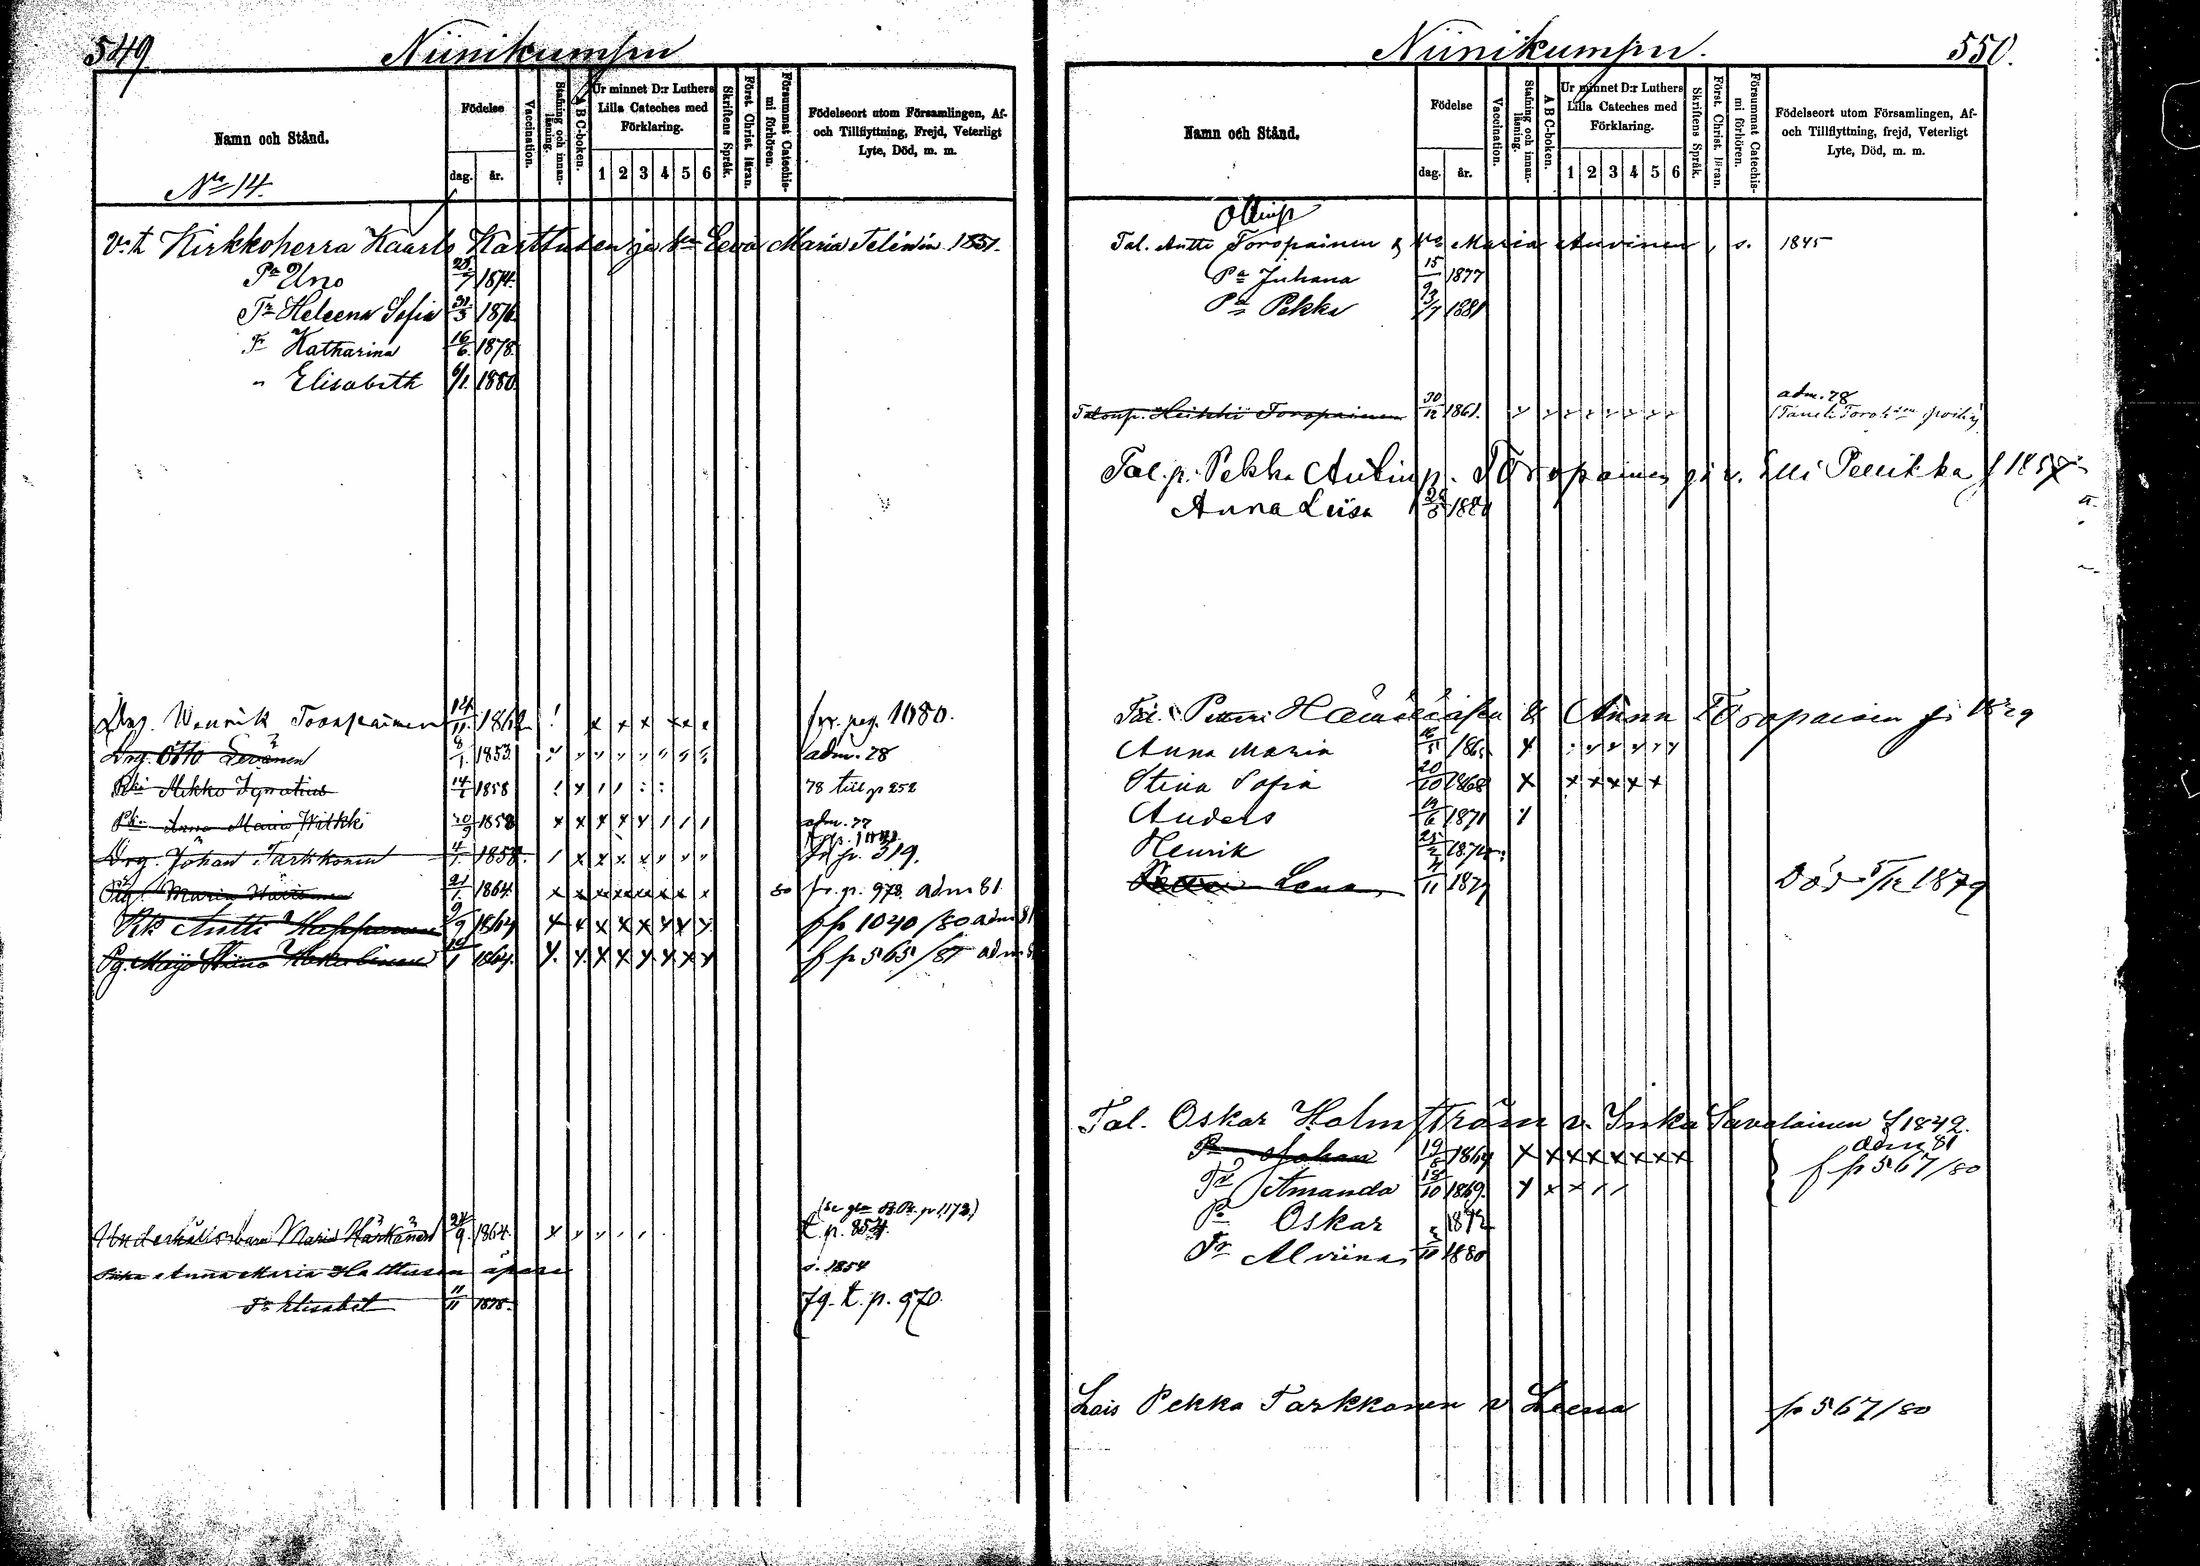 549 Niinikumpu
Namn och Stånd.
Födelse
dag. år.
Vaccination.
Stafning och innanläsning.
A B C-boken.
Ur minnet D:r Luthers Lilla Cateches med Förklaring.
1 2 3 4 5 6
Skriftens Språk.
Först. Christ. läran.
Försummat Catechismi förhören.
Födelseort utom Församlingen, Af- och Tillflyttning, Frejd, Veterligt Lyte, Död, m. m.
No 14.
V.t. Kirkkoherra Kaarlo Karttunen ja Vmo Eeva Maria Telinin 1851.
Pa Uno 1874.
Tr Heleena Sofia 31/3 1876.
Tr Katharina 16/6. 1878.
" Elisabeth 6/1. 1880.
Drg. Henrik Toropainen 14/11 1862 fr. pag. 1080.
Drg. Otto Levänen 8/1. 1853 adm. 78
Rki Mikko Ignatius 14/1 1858 78 till p 252
Pk. Anna Maria Witkki 20/9 1858 adm. 77
Drg. Johan Tarkkonen 4/1. 1858. fr. p. 319.
Pig. Maria 21/1. 1864. 80 fr. p. 978. adm 81.
Rk Antti Hepponen 9/9 1864 f p 1040/80 adm 81
Pg. Maija Stiina 1864. f p 565/81 adm
Maria Härkänen 24/9. 1864. t. p. 857.
Piika Anna Maria Halttunen äpäre s. 1854
Tr Elisabet 11/11 1878. fg. t. p. 970.
Niinikumpu. 550.
Namn och Stånd.
Födelse
dag. år.
Vaccination.
Stafning och innanläsning.
A B C-boken.
Ur minnet D:r Luthers Lilla Cateches med Förklaring.
1 2 3 4 5 6
Skriftens Språk.
Först. Christ. läran.
Försummat Catechismi förhören.
Födelseort utom Församlingen, Af- och Tillflyttning, frejd, Veterligt Lyte, Död, m. m.
Tal. Antti Toropainen & Vmo Maria Auvinen, s. 1845
Pa Juhana 1877
Pa Pekka 1881
adm. 78
Talonp. Heikki Toropainen 30/12 1861.
Tal. p. Pekka Antinp. Toropainen ja v. Elli Pellikka f 1857
Anna Liisa
Tal. Petteri & Anna Toropainen
Anna Maria
Stina Sofia 20/10 1868
Anders 1871
Henrik
Lena 4/11 1879 Död 5/12 1879
Tal. Oskar Holmström v. Inka Savolainen f 1842.
adm 81
Pa Johan 1867 f p 567/80
Tr Amanda 1869.
Pa Oskar 1872
Tr Alviina 1880
Lois Pekka Tarkkonen v Leena p 567/80